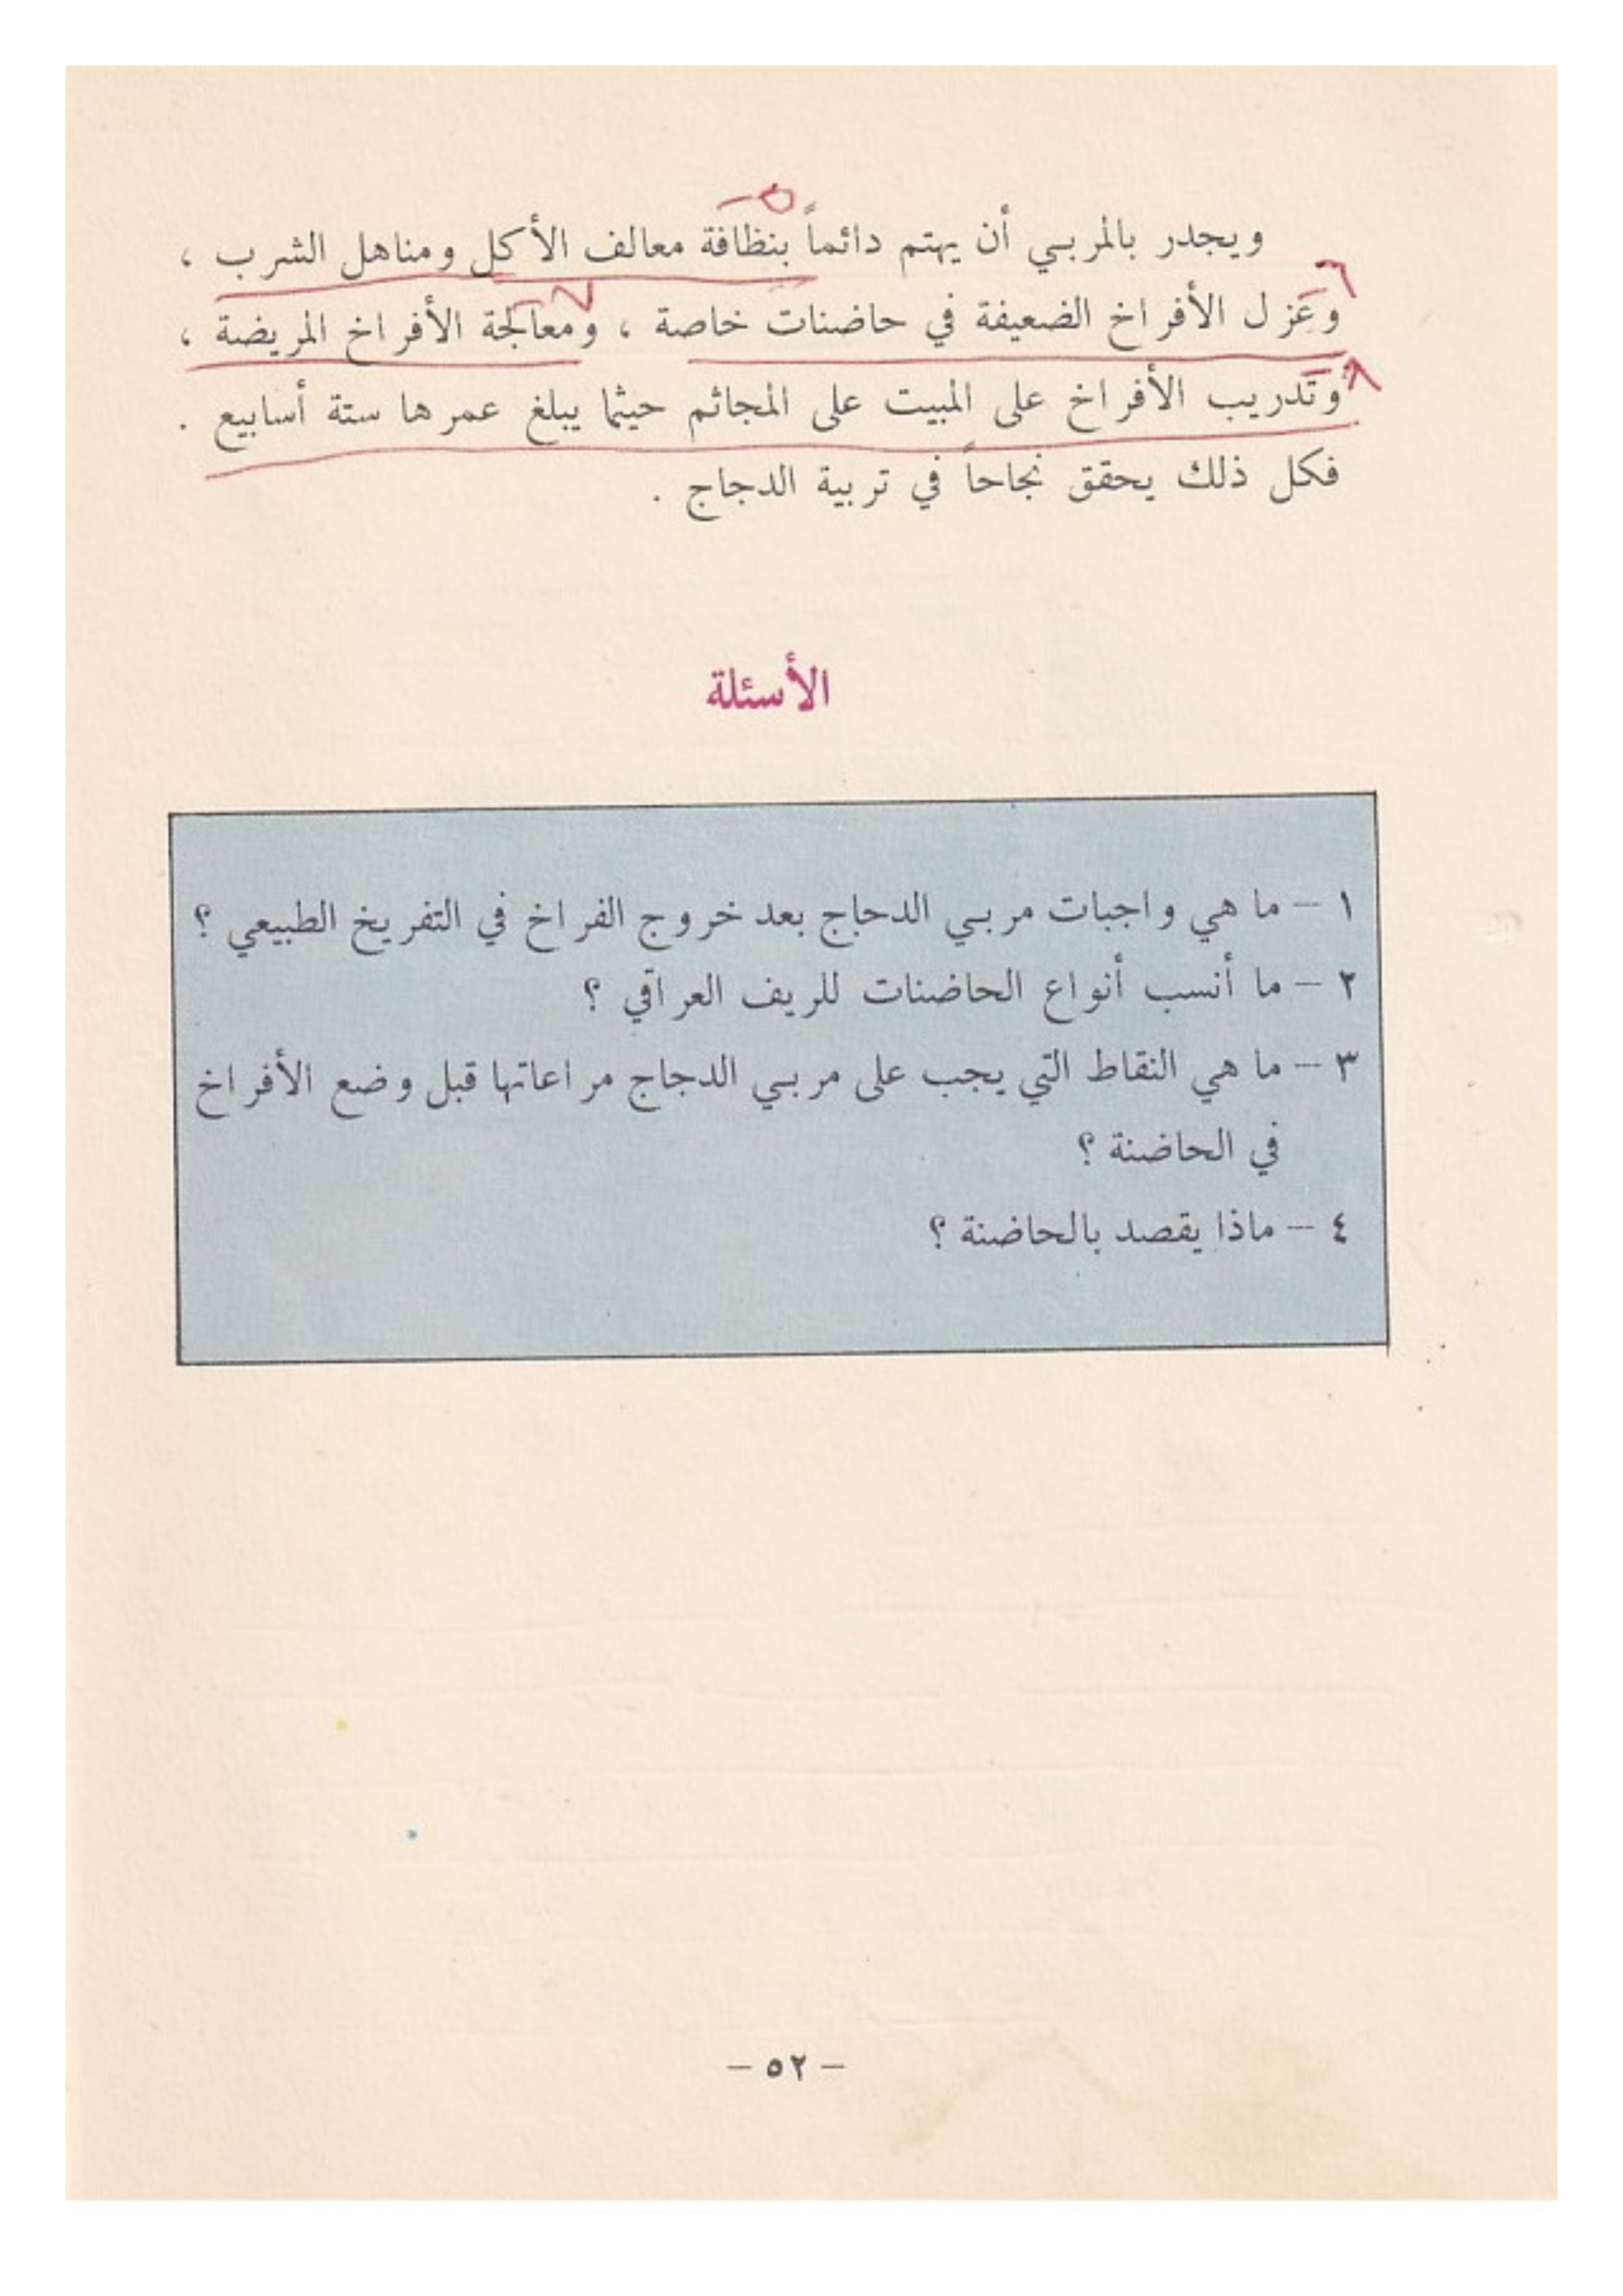 ويجدر بالمربي أن يهتم دائماً بنظافة معالف الأكل ومناهل الشرب ،
وعزل الأفراخ الضعيفة في حاضنات خاصة ، ومعالجة الأفراخ المريضة ،
وتدريب الأفراخ على المبيت على المجاثم حيثما يبلغ عمرها ستة أسابيع .
فكل ذلك يحقق نجاحاً في تربية الدجاج .
الأسئلة
١ – ما هي واجبات مربي الدحاج بعد خروج الفراخ في التفريخ الطبيعي ؟
٢ – ما أنسب أنواع الحاضنات للريف العراقي ؟
٣ – ما هي النقاط التي يجب على مربي الدجاج مراعاتها قبل وضع الأفراخ
في الحاضنة ؟
٤ – ماذا يقصد بالحاضنة ؟
– ٥٢ –